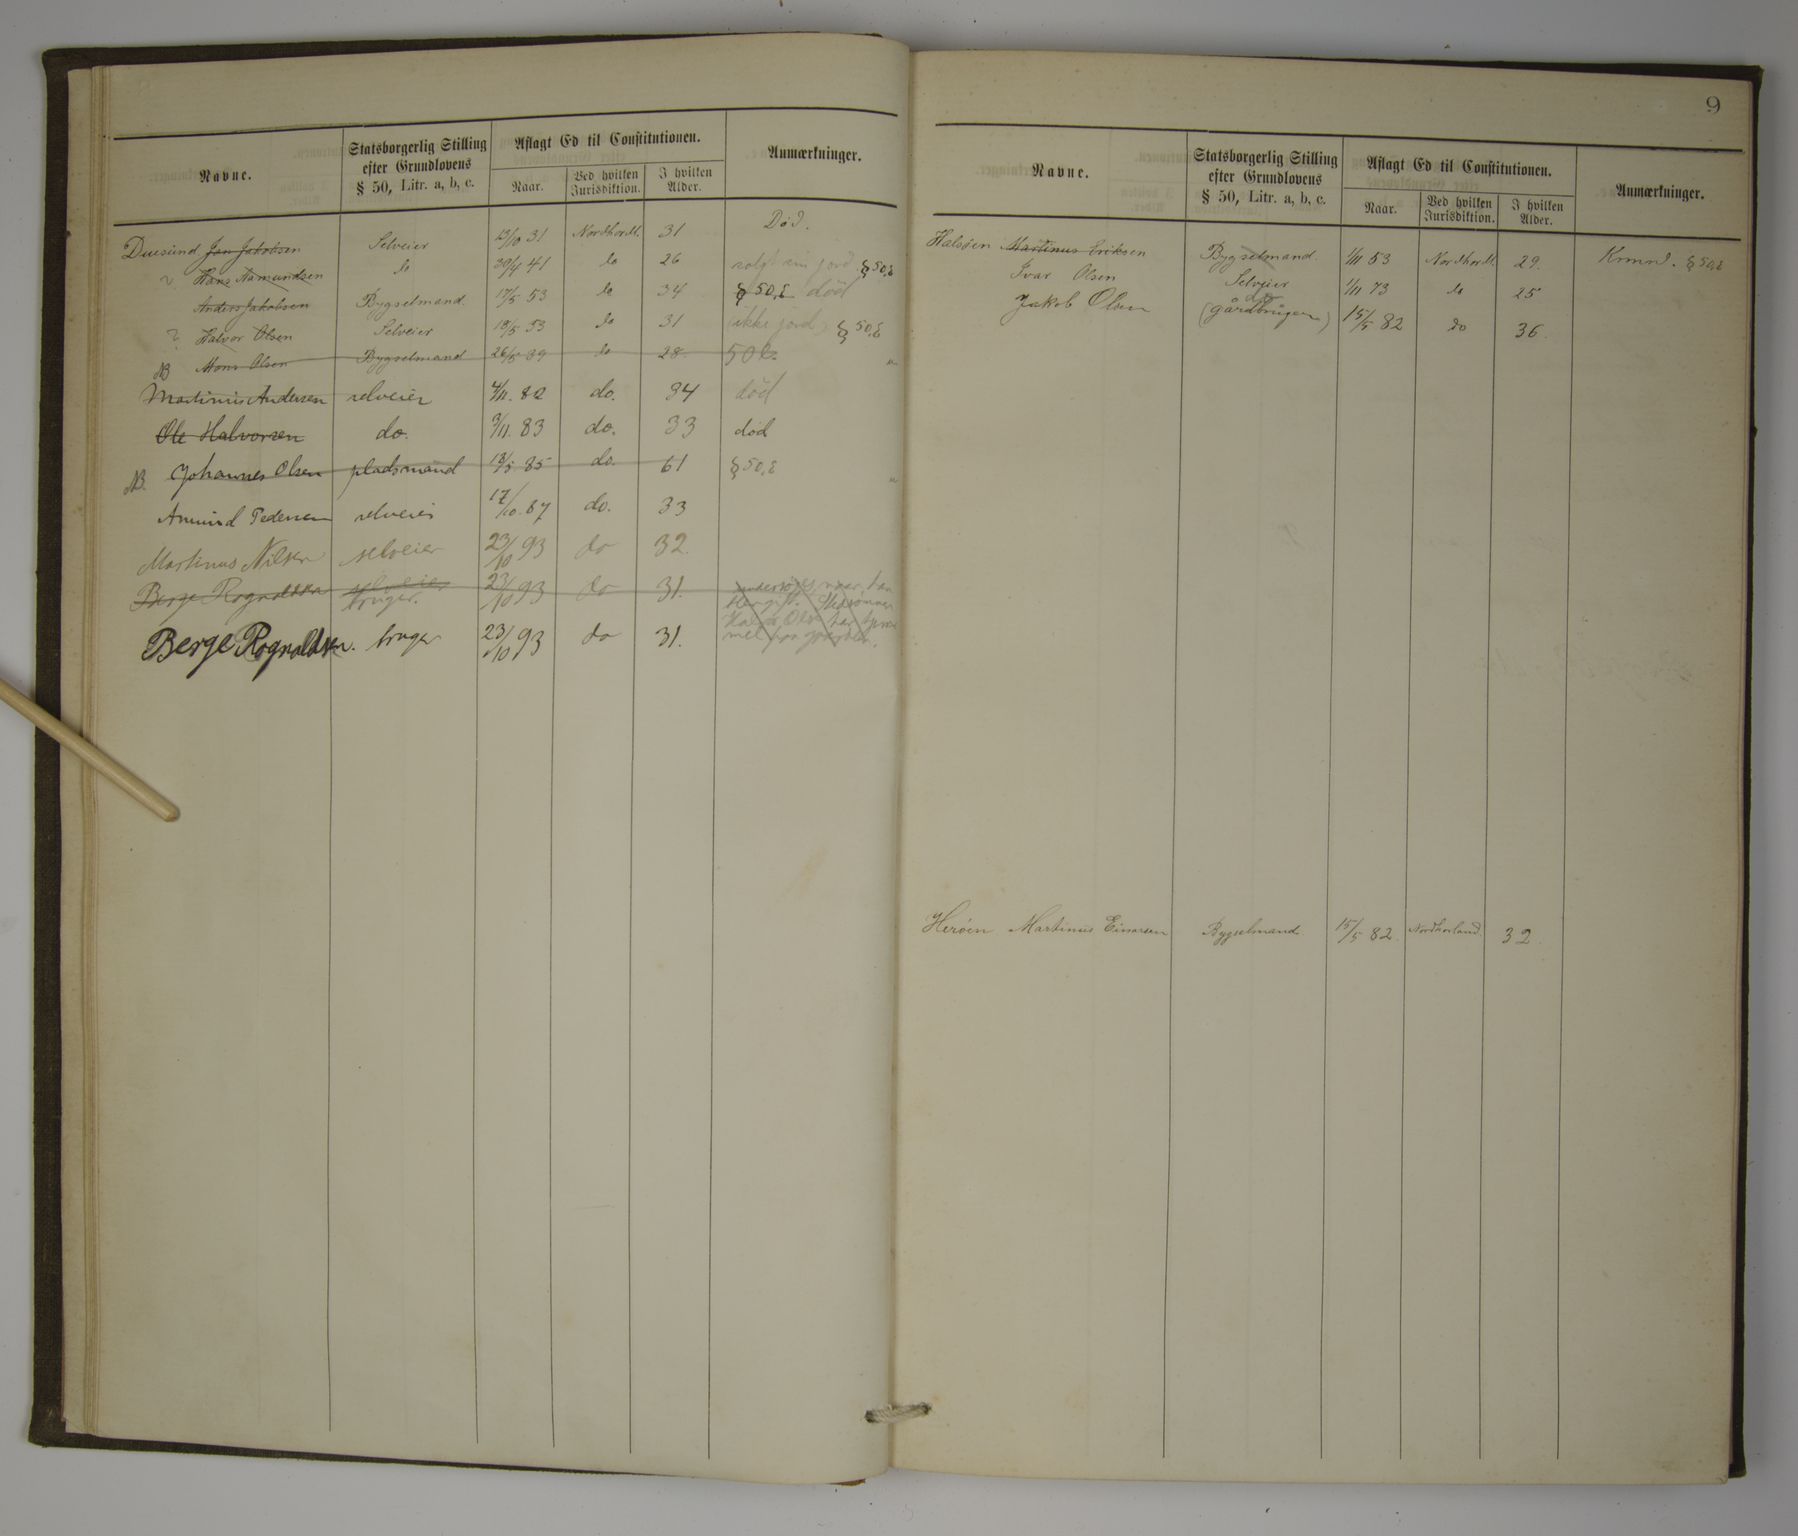 Navne.
Statsborgerlig Stilling efter Grundlovens § 50, Litr. a, b, c.
Aflagt Ed til Constitutionen.
Naar.
Ved hvilken Jurisdiktion.
I hvilken Alder.
Anmærkninger.
Duesund Jan Jakobsen Selveier 13/10 31 Nordhordl. 31 Död.
? Hans Aamundsen do 30/4 41 do 26 solgt sin jord § 50,ε
Anders Jakobsen Bygselmand 17/5 53 do 34 § 50,ε död
? Halvor Olsen Selveier 18/5 53 do 31 (ikke jord) § 50,ε
NB Mons Olsen Bygselmand 26/5 39 do 28 50 e. "
Martinus Andersen selveier 4/11. 82 do. 34 död
Ole Halvorsen do. 3/11. 83 do. 33 död
NB. Johannes Olsen pladsmand 18/5 85 do. 61 § 50,ε "
Amund Pedersen selveier 17/10. 87 do. 33
Martinus Nilsen selveier 23/10 93 do 32.
Berge Rognaldsen selveier bruger. 23/10 93 do 31. undersöges naar han
Halvor Olsen har
Berge Rognaldsen. bruger 23/10 93 do 31.
9
Navne.
Statsborgerlig Stilling efter Grundlovens § 50, Litr. a, b, c.
Aflagt Ed til Constitutionen.
Naar.
Ved hvilken Jurisdiktion.
I hvilken Alder.
Anmærkninger.
Halsöen Martinus Eriksen Bygselmand. 1/11 53 Nordhordl. 29. § 50,ε
Ivar Olsen Selveier 1/11 73 do 25
Jakob Olsen (gårdbruger) 15/5 82 do 36.
Heröen Martinus Einarsen Bygselmand 15/5 82. Nordhorland. 32.